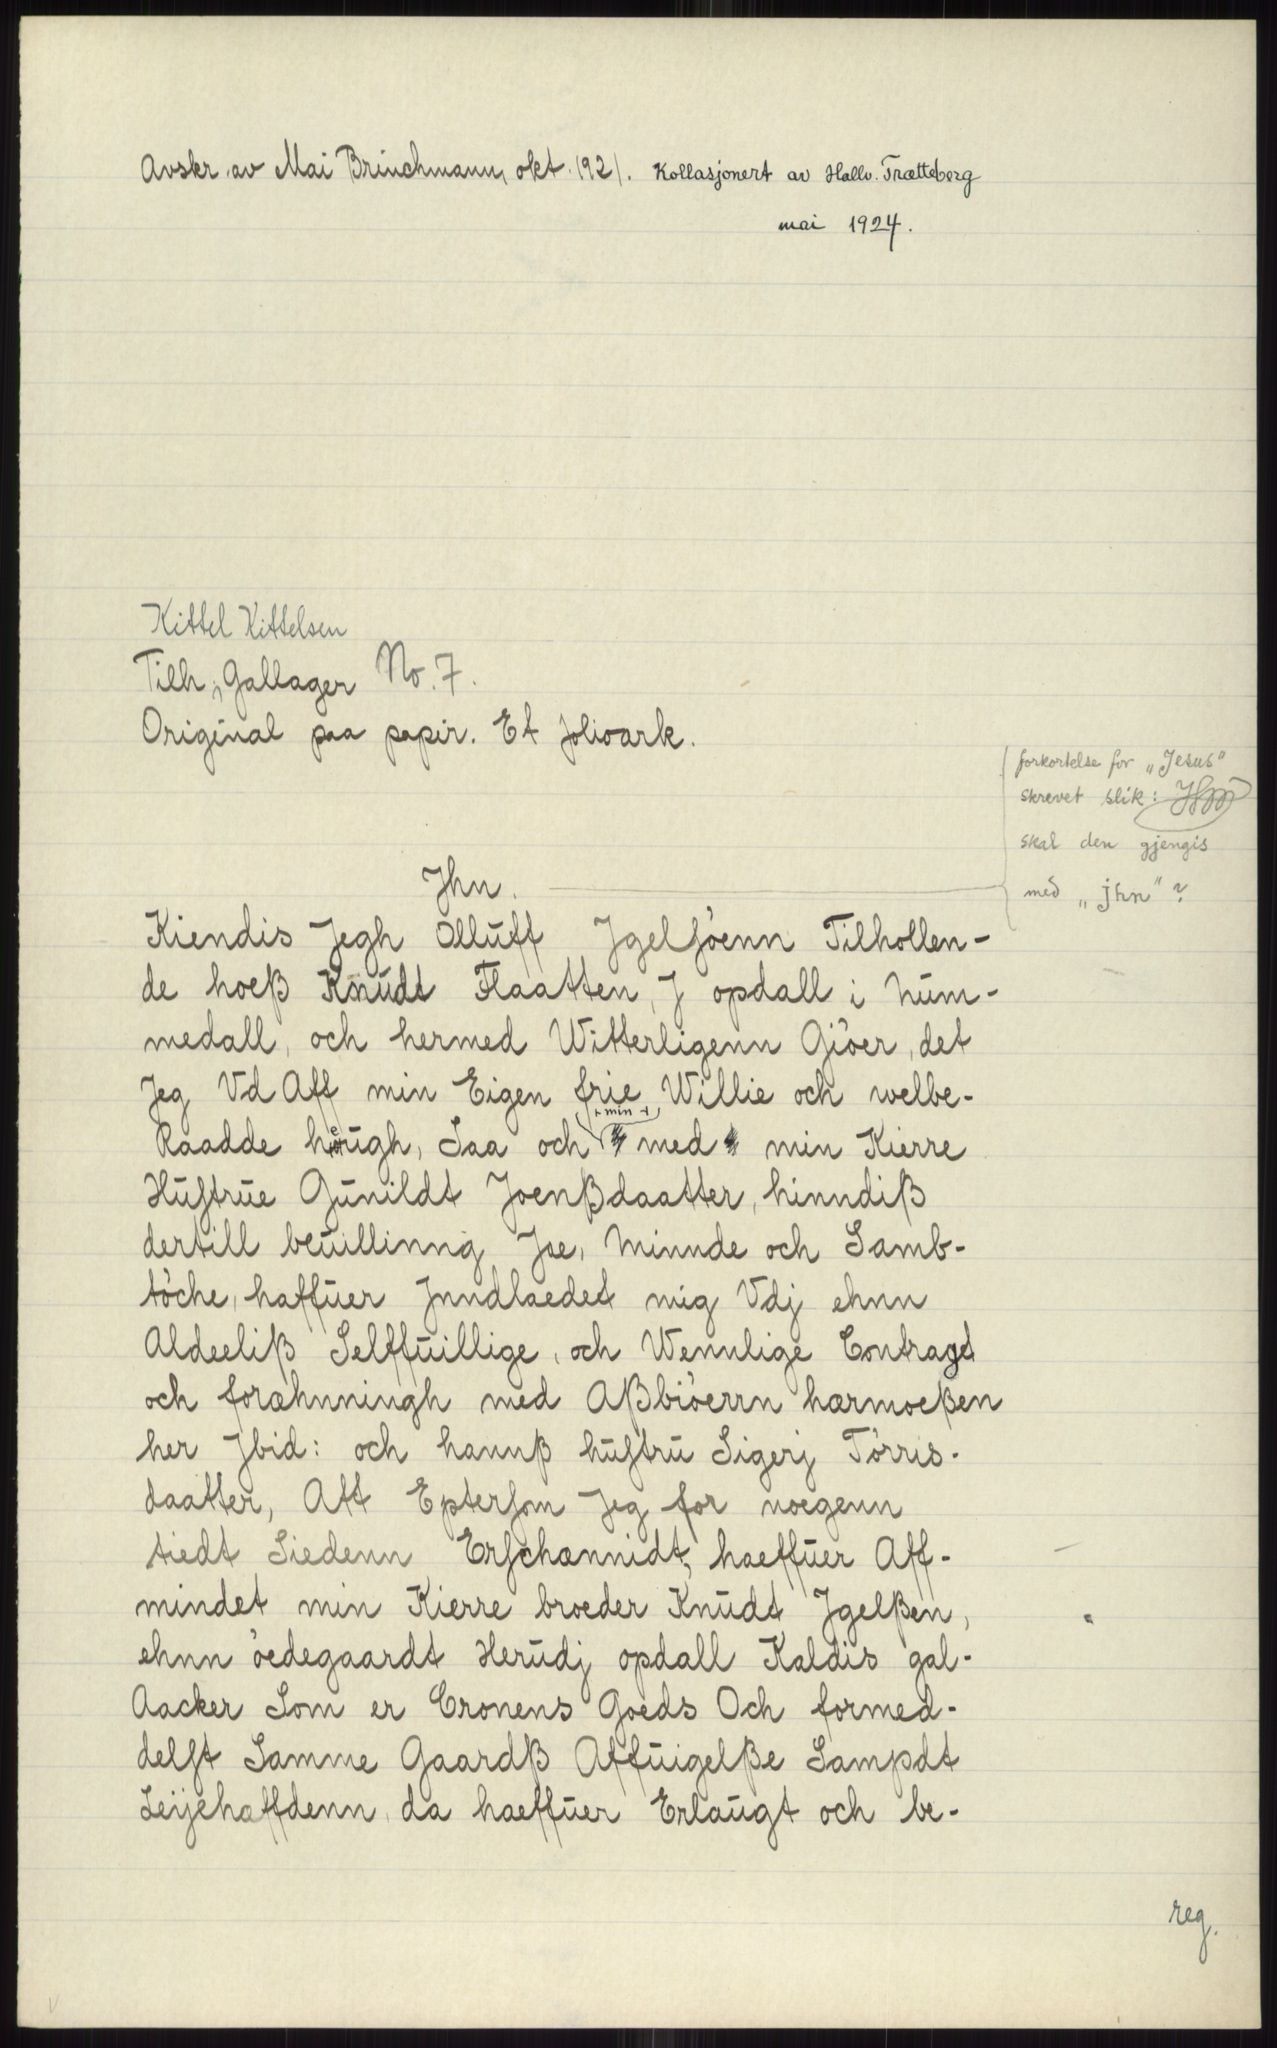 Avskr. av Mai Brinchmann, okt. 1921. Kollasjonert av Hallv. Trætteberg
mai 1924.
Kittel Kittelsen
Tilh. Gallager No. 7.
Original paa papir. Et folioark.
forkortelse for „Jesus"
skrevet slik:
skal den gjengis
med „jhn"?
Jhn.
Kiendis Jegh Olluff Jgelsöenn Tilhollen-
de hoeß Knudt Flaatten, J opdall i Num-
medall, och hermed Witterligenn Giöer, det
Jeg Vd Aff min Eigen frie Willie och welbe-
+ min +
Raadde hough, Saa och med min Kierre
Hustrue Gunildt Joenßdaatter, hinndiß
dertill beuillinng Joe, Minnde och Samb-
töche, haffuer Jnndlaedet mig Vdj ehnn
Aldeeliß Selffuillige, och Wennlige Contragt
och foræhnningh med Aßbiöerrn harmoeßen
her Jbid: och hannß hustru Sigerj Törris-
daatter, Att Eptersom Jeg for noegenn
tiedt Siedenn Erschannidt, haeffuer Aff-
mindet min Kierre broeder Knudt Jgelßen,
ehnn öedegaardt Herudj opdall Kaldis gal-
Aacker Som er Cronens Goeds Och formed-
delst Samme Gaardß Affuigelße Sampdt
Leijehaffdenn, da haeffuer Erlaugt och be-
reg.